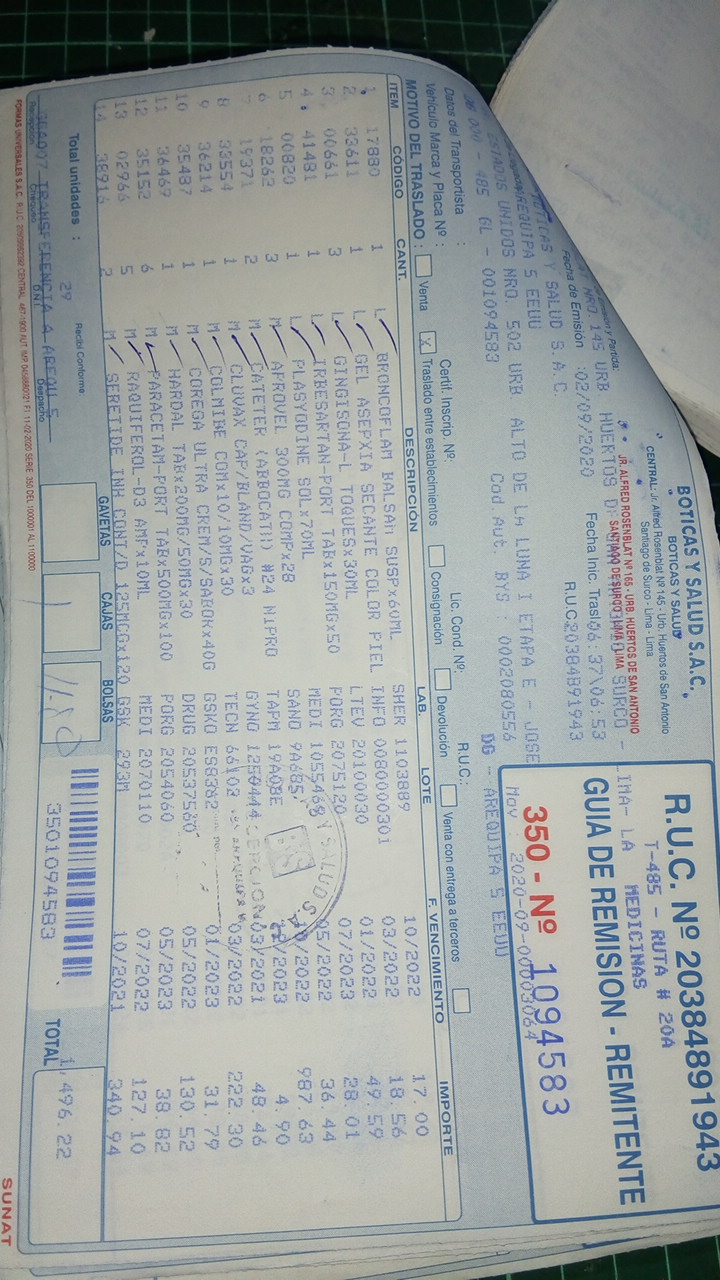 BOTICAS Y SALUD S.A.C.
BOTICAS Y SALUD
CENTRAL: Jr. Alfred Rosenblat Nº 145 - Urb. Huertos de San Antonio
Santiago de Surco - Lima - Lima
JR. ALFRED ROSENBLAT Nº 165 - URB. HUERTOS DE SAN ANTONIO
SANTIAGO DE SURCO - LIMA - LIMA
R.U.C. Nº 20384891943
T-485 - RUTA # 20A
MEDICINAS
GUIA DE REMISION - REMITENTE
350 - Nº 1094583
NRO. 145 URB HUERTOS SURCO - LIMA- LA
Fecha de Emisión :02/09/2020 Fecha Inic. Trasl 06:37\06:53
BOTICAS Y SALUD S.A.C. R.U.C. 20384891943
AREQUIPA 5 EEUU
ESTADOS UNIDOS NRO. 502 URB ALTO DE LA LUNA I ETAPA E - JOSE
485 GL - 001094583 Cod.Aut. BYS : 0002080556 DG - AREQUIPA 5 EEUU
Mov : 2020-09-00003064
Datos del Transportista : Certif. Inscrip. Nº: Lic. Cond. Nº: R.U.C.:
Vehículo Marca y Placa Nº :
MOTIVO DEL TRASLADO : Venta X Traslado entre establecimientos Consignación Devolución Venta con entrega a terceros
ITEM CÓDIGO CANT. DESCRIPCIÓN LAB. LOTE F. VENCIMIENTO IMPORTE
1 17880 1 L BRONCOFLAM BALSAM SUSPx60ML SHER 1103889 10/2022 17.00
2 33611 1 L GEL ASEPXIA SECANTE COLOR PIEL INFO 0080000301 03/2022 18.56
3 00661 3 L GINGISONA-L TOQUESx30ML LTEV 20100030 01/2022 49.59
4 41481 1 L IRBESARTAN-PORT TABx150MGx50 PORG 2075120 07/2023 28.01
5 00820 1 L PLASYODINE SOLx70ML MEDI 1055468 05/2022 36.44
6 18262 3 M APROVEL 300MG COMPx28 SANO 9A685 /2022 987.63
7 19371 2 M CATETER (ABBOCATH) #24 NIPRO TAPM 19A08E /2023 4.90
8 33554 1 M CLUVAX CAP/BLAND/VAGx3 GYNO 1250444 03/2021 48.46
9 36214 1 M COLMIBE COMx10/10MGx30 TECN 66102 03/2022 222.30
10 35487 1 M COREGA ULTRA CREM/S/SABORx40G GSKO ES8362 01/2023 31.79
11 36467 1 M HARDAL TABx200MG/50MGx30 DRUG 20537560 05/2022 130.52
12 35152 6 M PARACETAM-PORT TABx500MGx100 PORG 2054060 05/2023 38.82
13 02966 5 M RAQUIFEROL-D3 AMPx10ML MEDI 2070110 07/2022 127.10
14 38916 2 M SERETIDE INH CONT/D 125MCGx120 GSK 293M 10/2021 340.94
Total unidades : 29 Recibí Conforme GAVETAS CAJAS BOLSAS
TRANSFERENCIA A AREQU 5
Recepción Chequeo DNI Despacho
3501094583
TOTAL 1,496.22
FORMAS UNIVERSALES S.A.C.
SUNAT